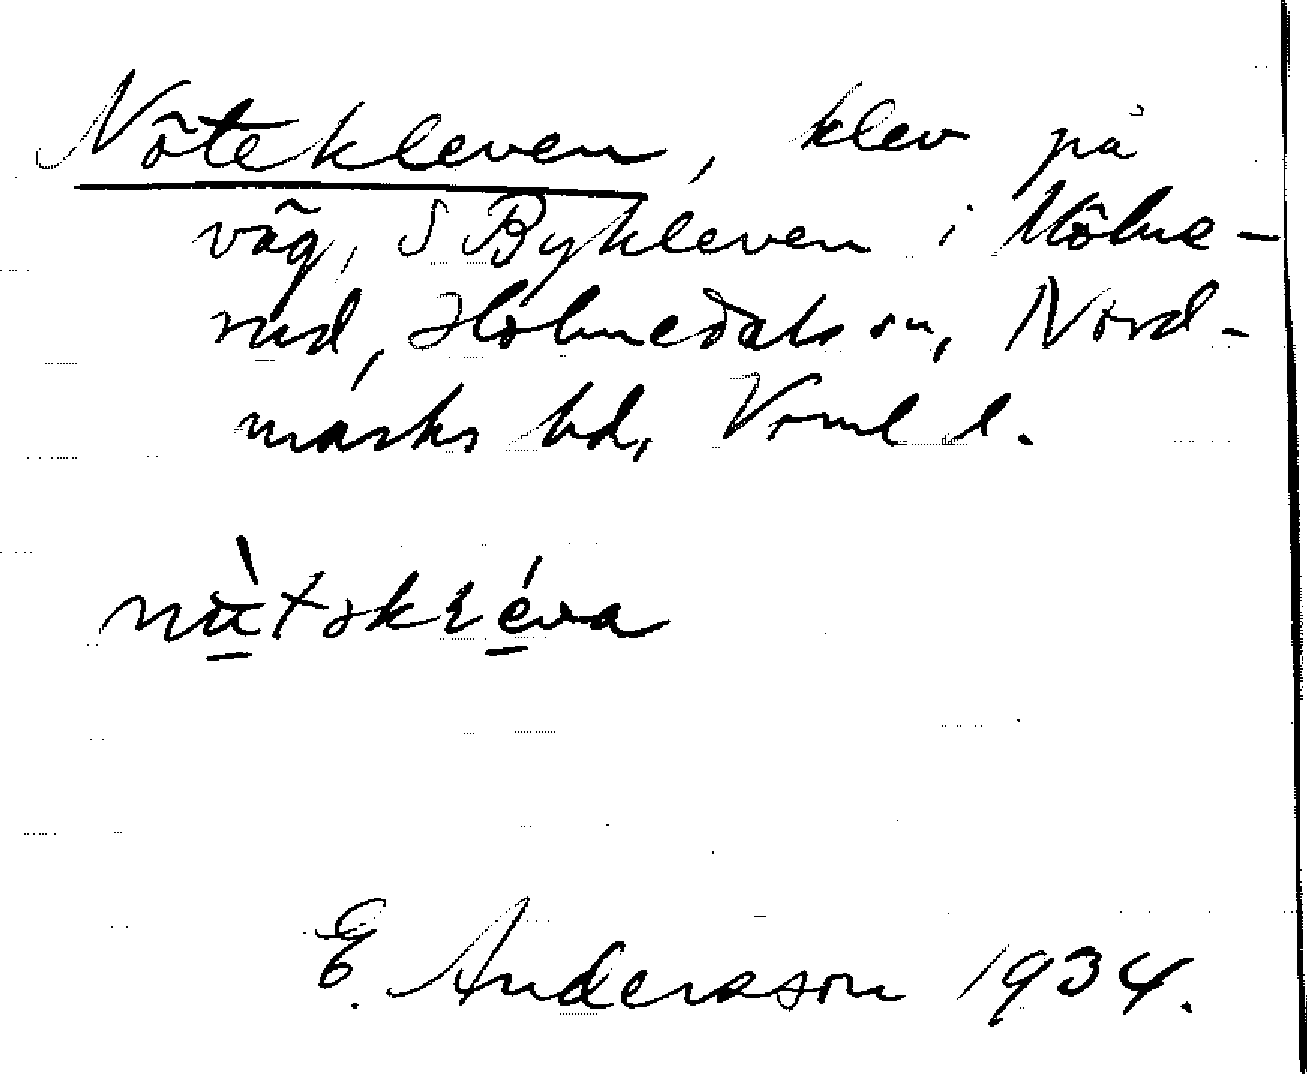 Nötekleven, klev på
väg, S Bykleven i Hölje-
rud, Holmedals sn, Nord-
marks hd, Vrml l.
E. Andersson 1934.